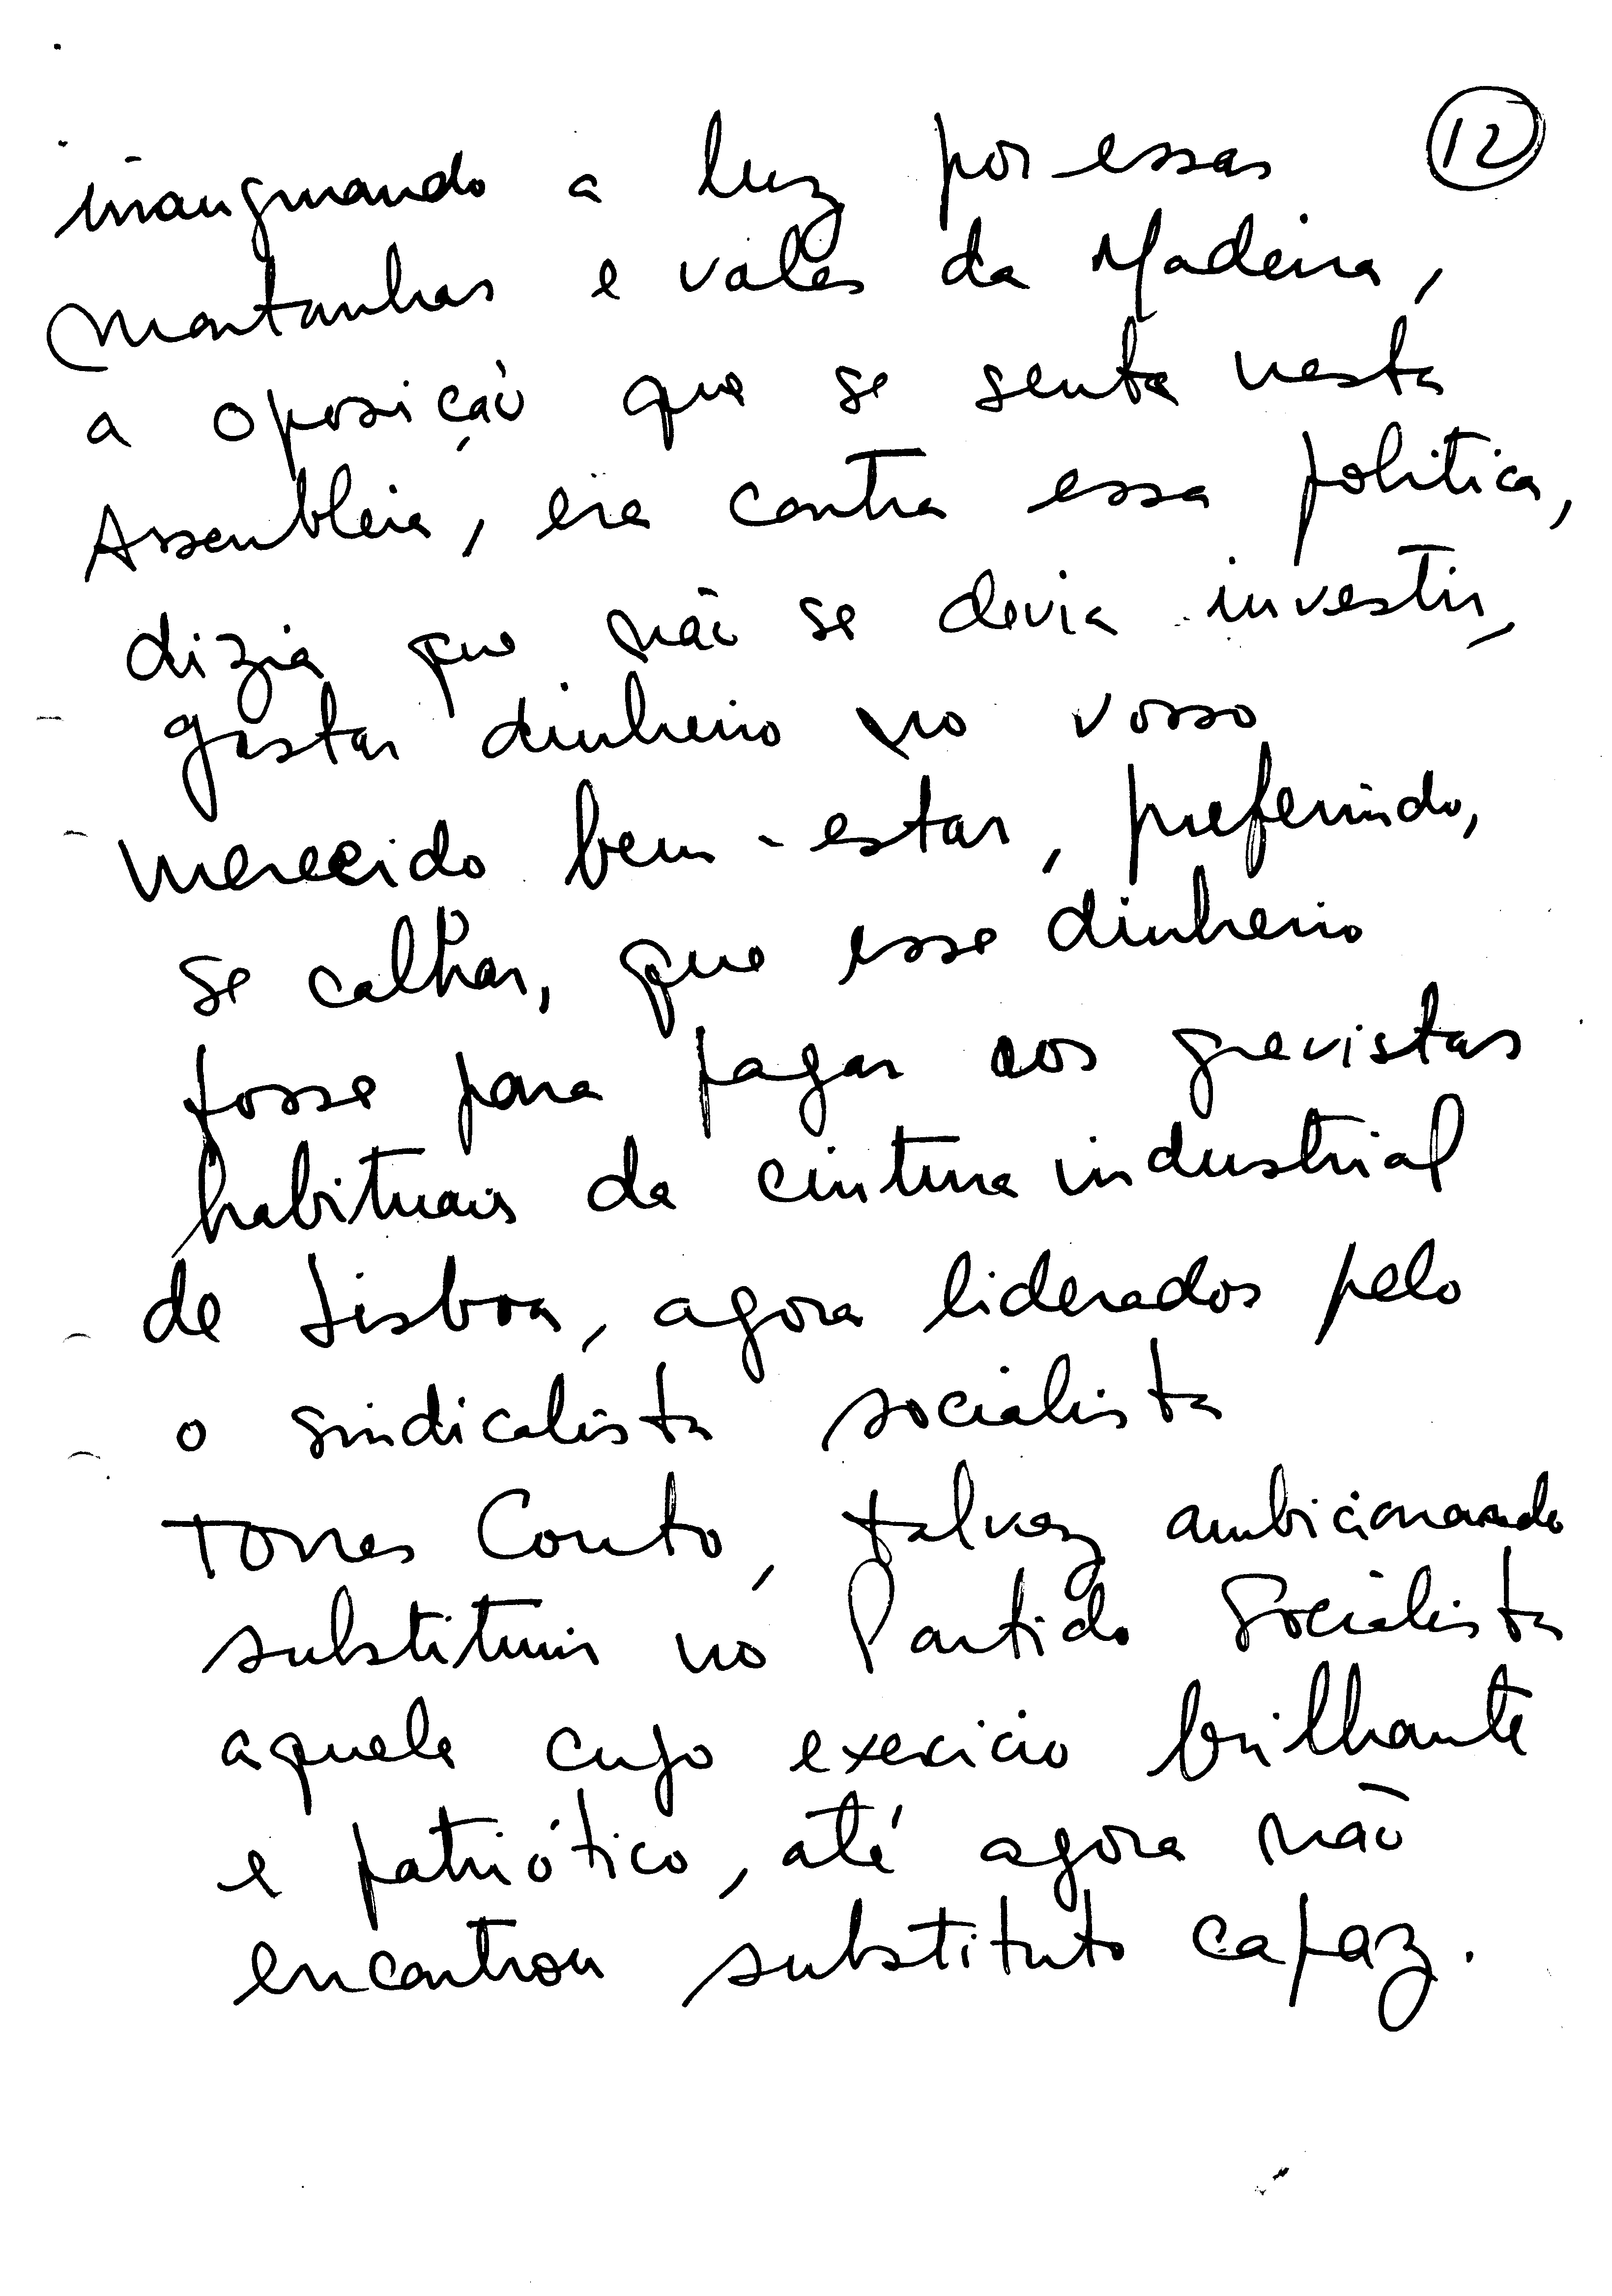 12
inaugurando a luz por essas
montanhas e vales da Madeira,
a oposição que se senta nesta
Assembleia, era contra essa politica,
dizia que não se devia investir,
gastar dinheiro no vosso
merecido bem-estar, preferindo,
se calhar, que esse dinheiro
fosse para pagar aos grevistas
habituais da cintura industrial
de Lisboa, agora liderados pelo
o sindicalista socialista
Torres Couto, talvez ambicionando
substituir no Partido Socialista
aquele cujo exercicio brilhante
e patriótico, até agora não
encontrou substituto capaz.